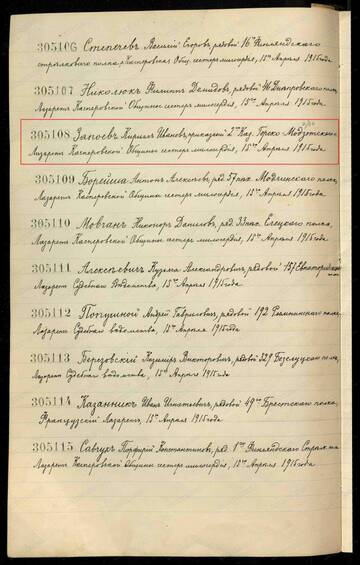 305106 Степочевъ Василій Егоровъ, рядовой 16 Финляндскаго
стрѣлковаго полка, Касперовская Общ. сестеръ милосердія, 15го Апрѣля 1915 года
305107 Николюкъ Филиппъ Демидовъ, рядовой Днѣпровскаго полка,
Лазаретъ Касперовской Общины сестеръ милосердія, 15го Апрѣля 1915 года
305108 Запоевъ Кириллъ Ивановъ, приказный 2го Кав. Горско-Моздокскаго
Лазаретъ Касперовской Общины сестеръ милосердія, 15го Апрѣля 1915 года
305109 Борейша Антонъ Алексѣевъ, ряд. 57 пах. Модлинскаго полка,
Лазаретъ Касперовской Общины сестеръ милосердія, 15го Апрѣля 1915 года
305110 Мовчанъ Никоноръ Даниловъ, ряд. 33 пах. Елецкаго полка,
Лазаретъ Касперовской Общины сестеръ милосердія, 15го Апрѣля 1915 года
305111 Алексѣевичъ Кузьма Александровичъ, рядовой
Лазаретъ Судебнаго Вѣдомства, 15го Апрѣля 1915 года
305112 Андрей Гавриловъ, рядовой 192 полка,
Лазаретъ Судебнаго вѣдомства, 15го Апрѣля 1915 года
305113 Березовскій Казимиръ Викторовичъ, рядовой 329 Бузулуцкаго полка,
Лазаретъ Судебнаго вѣдомства, 15го Апрѣля 1915 года
305114 Казанникъ Иванъ Игнатьевичъ, рядовой 49го Брестскаго полка,
Французскій Лазаретъ, 15го Апрѣля 1915 года
305115 Савчукъ Порфирій Константиновъ, ряд. 1го Финляндскаго Стрѣлк. полка
Лазаретъ Касперовской Общины сестеръ милосердія, 15го Апрѣля 1915 года